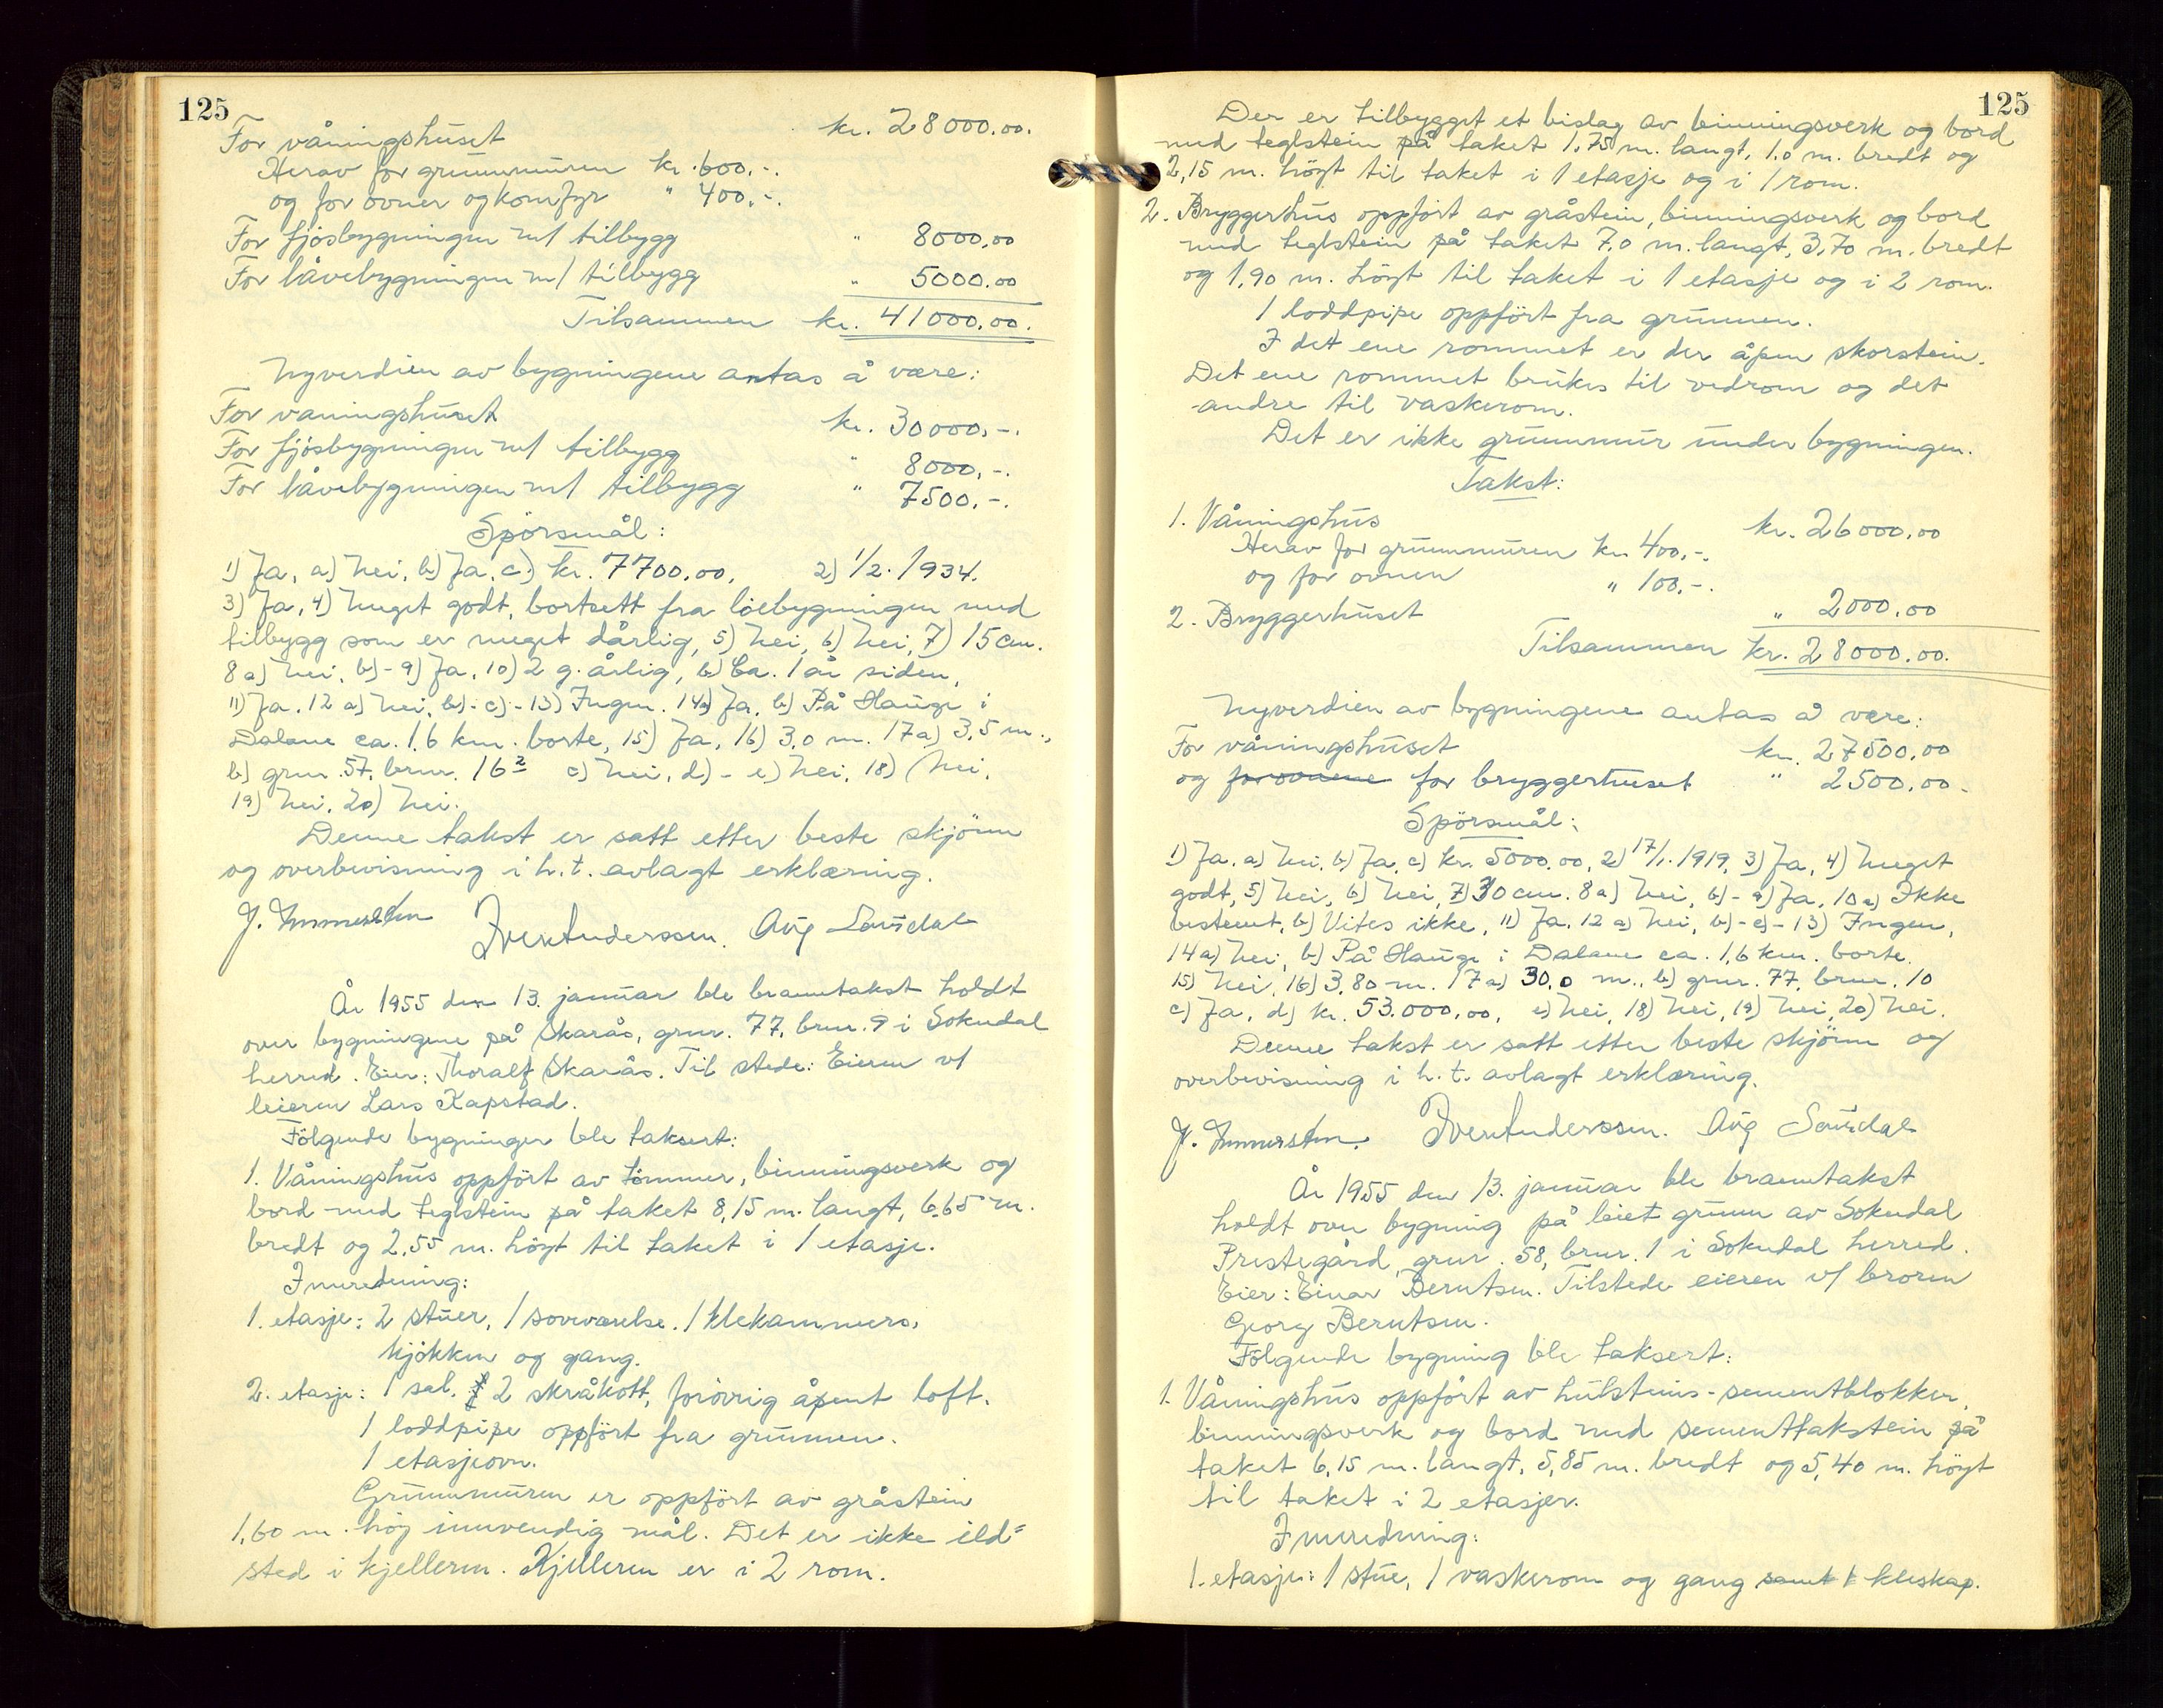 125
For våningshuset kr. 28000.00.
Herav for grunnmuren kr. 600.-.
og for ovner og komfyr " 400.-.
For fjösbygningen m/ tilbygg " 8000.00
For låvebygningen m/ tilbygg " 5000.00
Tilsammen kr. 41000.00.
Nyverdien av bygningene antas å være:
For våningshuset kr. 30000.-.
For fjösbygningen m/ tilbygg " 8000.-.
For låvebygningen m/ tilbygg " 7500.-.
Spörsmål:
1) Ja, a) Nei, b) Ja, c) kr. 7700.00. 2) 1/2. 1934.
3) Ja, 4) Meget godt, bortsett fra löebygningen med
tilbygg som er meget dårlig, 5) Nei, 6) Nei, 7) 15 cm.
8 a) Nei, b) - 9) Ja, 10) 2 g. årlig, b) Ca. 1 år siden,
11) Ja. 12 a) Nei, b) - c) - 13) Ingen. 14a) Ja, b) På Hauge i
Dalane ca. 1,6 km. borte, 15) Ja, 16) 3,0 m. 17a) 3,5 m.,
b) grnr. 57, brnr. 16² c) Nei, d) - e) Nei, 18) Nei,
19) Nei, 20) Nei.
Denne takst er satt etter beste skjönn
og overbevisning i h. t. avlagt erklæring.
Iver Anderssen. Aug Saurdal
År 1955 den 13. januar ble branntakst holdt
over bygningene på Skarås, grnr. 77, brnr. 9 i Sokndal
herred. Eier: Thoralf Skarås. Til stede: Eieren v/
leieren Lars Kapstad.
Fölgende bygninger ble taksert:
1. Våningshus oppfört av tömmer, binningsverk og
bord med teglstein på taket 8,15 m. langt, 6,65 m.
bredt og 2,55 m. höyt til taket i 1 etasje.
Innredning:
1. etasje: 2 stuer, 1 soveværelse, 1 klekammers,
kjökken og gang.
2. etasje: 1 sal, 2 skråkott, forövrig åpent loft.
1 loddpipe oppfört fra grunnen.
1 etasjeovn.
Grunnmuren er oppfört av gråstein
1,60 m. höy innvendig mål. Det er ikke ild=
sted i kjelleren. Kjelleren er i 2 rom.
125
Der er tilbygget et bislag av binningsverk og bord
med teglstein på taket 1,75 m. langt, 1,0 m. bredt og
2,15 m. höyt til taket i 1 etasje og i 1 rom.
2. Bryggerhus oppfört av gråstein, binningsverk og bord
med teglstein på taket 7,0 m. langt, 3,70 m. bredt
og 1,90 m. höyt til taket i 1 etasje og i 2 rom.
1 loddpipe oppfört fra grunnen.
I det ene rommet er der åpen skorstein.
Det ene rommet brukes til vedrom og det
andre til vaskerom.
Det er ikke grunnmur under bygningen.
Takst:
1. Våningshus kr. 26000.00
Herav for grunnmuren kr. 400.-.
og for ovnen " 100.-.
2. Bryggerhuset " 2000.00
Tilsammen kr. 28000.00.
Nyverdien av bygningene antas å være:
For våningshuset kr. 27500.00
og for ovnene for bryggerhuset " 2500.00.
Spörsmål:
1) Ja, a) Nei, b) Ja, c) kr. 5000.00, 2) 17/1. 1919, 3) Ja, 4) Meget
godt, 5) Nei, 6) Nei, 7) 30 cm. 8 a) Nei, b) - 9) Ja, 10 a) Ikke
bestemt, b) Vites ikke, 11) Ja, 12 a) Nei, b) - c) - 13) Ingen,
14 a) Nei, b) På Hauge i Dalane ca. 1,6 km. borte.
15) Nei, 16) 3,80 m. 17 a) 30,0 m., b) grnr. 77, brnr. 10
c) Ja, d) kr. 53.000,00, e) Nei, 18) Nei, 19) Nei, 20) Nei.
Denne takst er satt etter beste skjönn og
overbevisning i h. t. avlagt erklæring.
Iver Anderssen. Aug Saurdal
År 1955 den 13. januar ble branntakst
holdt over bygning på leiet grunn av Sokndal
Prestegård, grnr. 58, brnr. 1 i Sokndal herred.
Eier: Einar Berntsen. Tilstede eieren v/ broren
Georg Berntsen.
Fölgende bygning ble taksert:
1. Våningshus oppfört av hulsteins-sementblokker,
binningsverk og bord med sementtakstein på
taket 6,15 m. langt, 5,85 m. bredt og 5,40 m. höyt
til taket i 2 etasjer.
Innredning:
1. etasje: 1 stue, 1 vaskerom og gang samt 1 kleskap.